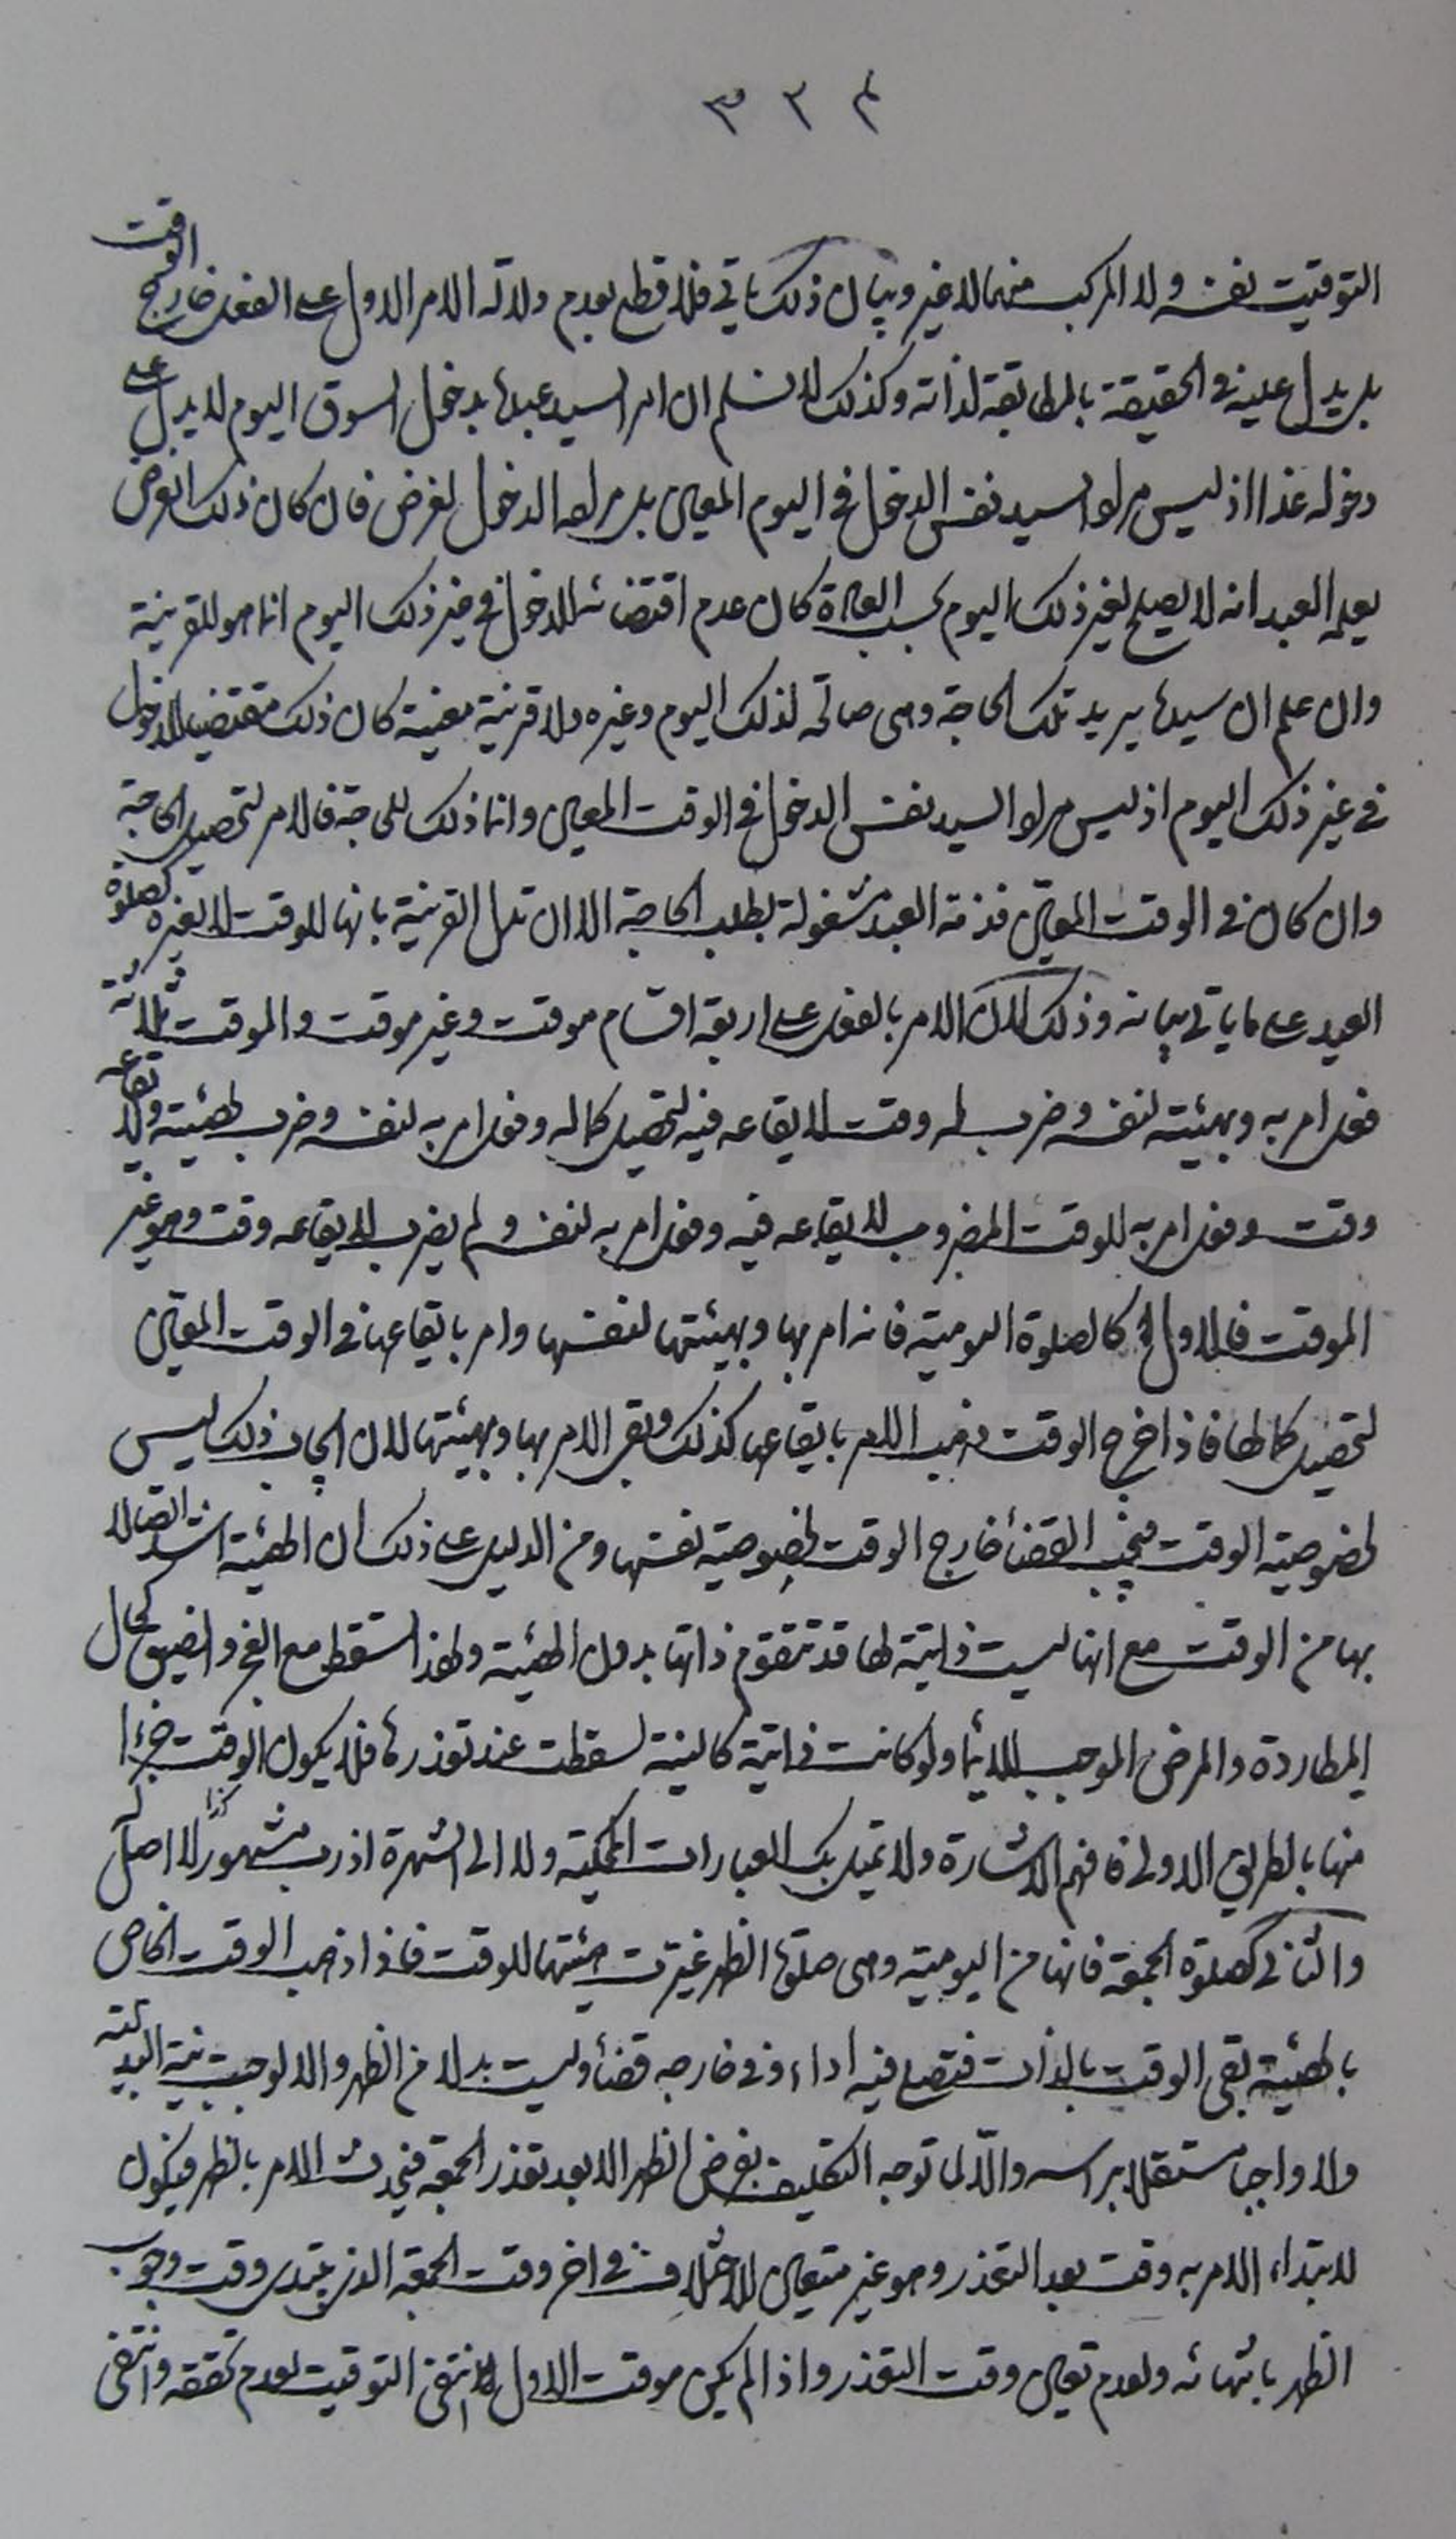 ٣٢٤
التوقيت نفسه ولا المركب منهما لا غير وبيان ذلك يأتي فلا قطع بعدم دلالة الامر الاول على الفعل خارج الوقت
بل يدل عليه في الحقيقة بالمطابقة لذاته وكذلك لا نسلم ان امر السيد عبده بدخول السوق اليوم لا يدل على
دخوله غدا اذ ليس مراد السيد نفس الدخول في اليوم المعين بل مراده الدخول لغرض فان كان ذلك الغرض
يعلم العبد انه لا يصلح لغير ذلك اليوم بحسب العادة كان عدم اقتضائه للدخول في غير ذلك اليوم انما هو للقرينة
وان علم ان سيده يريد تلك الحاجة وهى صالحة لذلك اليوم وغيره ولا قرينة معينة كان ذلك مقتضيا للدخول
في غير ذلك اليوم اذ ليس مراد السيد نفس الدخول في الوقت المعين وانما ذلك للحاجة فالامر لتحصيل الحاجة
وان كان في الوقت المعين فذمة العبد مشغولة بطلب الحاجة الا ان تدل القرينة بانها للوقت لا لغيره كصلوة
العيد على ما يأتي بيانه وذلك لان الامر بالفعل على اربعة اقسام موقت وغير موقت والموقت ثلاثة
فعل امر به وبهيئته لنفسه وضرب له وقت لايقاعه فيه لتحصيل كماله وفعل امر به لنفسه وضرب لهيئته ولايقاعه
وقت وفعل امر به للوقت المضروب لايقاعه فيه وفعل امر به لنفسه ولم يضرب لايقاعه وقت وهو غير
الموقت فالاول كالصلوة اليومية فانه امر بها وبهيئتها لنفسها وامر بايقاعها في الوقت المعين
لتحصيل كمالها فاذا خرج الوقت ذهب الامر بايقاعها كذلك وبقى الامر بها وبهيئتها لان ايجاب ذلك ليس
لخصوصية الوقت فيجب القضأ خارج الوقت لخصوصية نفسها ومن الدليل على ذلك ان الهيئة اشد اتصالا
بها من الوقت مع انها ليست ذاتية لها قد تتقوم ذاتها بدون الهيئة ولهذا تسقط مع العجز والضيق كحال
المطاردة والمرض الموجب للايمأ ولو كانت ذاتية كالنية لسقطت عند تعذرها فلا يكون الوقت جزءا
منها بالطريق الاولى فافهم الاشارة ولا تميل بك العبارات المحكية ولا الى الشهرة اذ رب مشهور لا اصل له
والثاني كصلوة الجمعة فانها من اليومية وهى صلوة الظهر غيرت هيئتها للوقت فاذا ذهب الوقت الخاص
بالهيئة بقى الوقت بالذات فتصلى فيه اداء وفي خارجه قضأ وليست بدلا من الظهر والا لوجبت نية البدلية
ولا واجبا مستقلا براسه والا لما توجه التكليف بفرض الظهر الا بعد تعذر الجمعة فيحدث الامر بالظهر فيكون
لابتداء الامر به وقت بعد التعذر وهو غير متعين للاختلاف في اخر وقت الجمعة الذى يبتدى وقت وجوب
الظهر بانتهائه ولعدم تعين وقت التعذر واذا لم يكن موقت الاول لانتفى التوقيت لعدم تحققه وانتفى